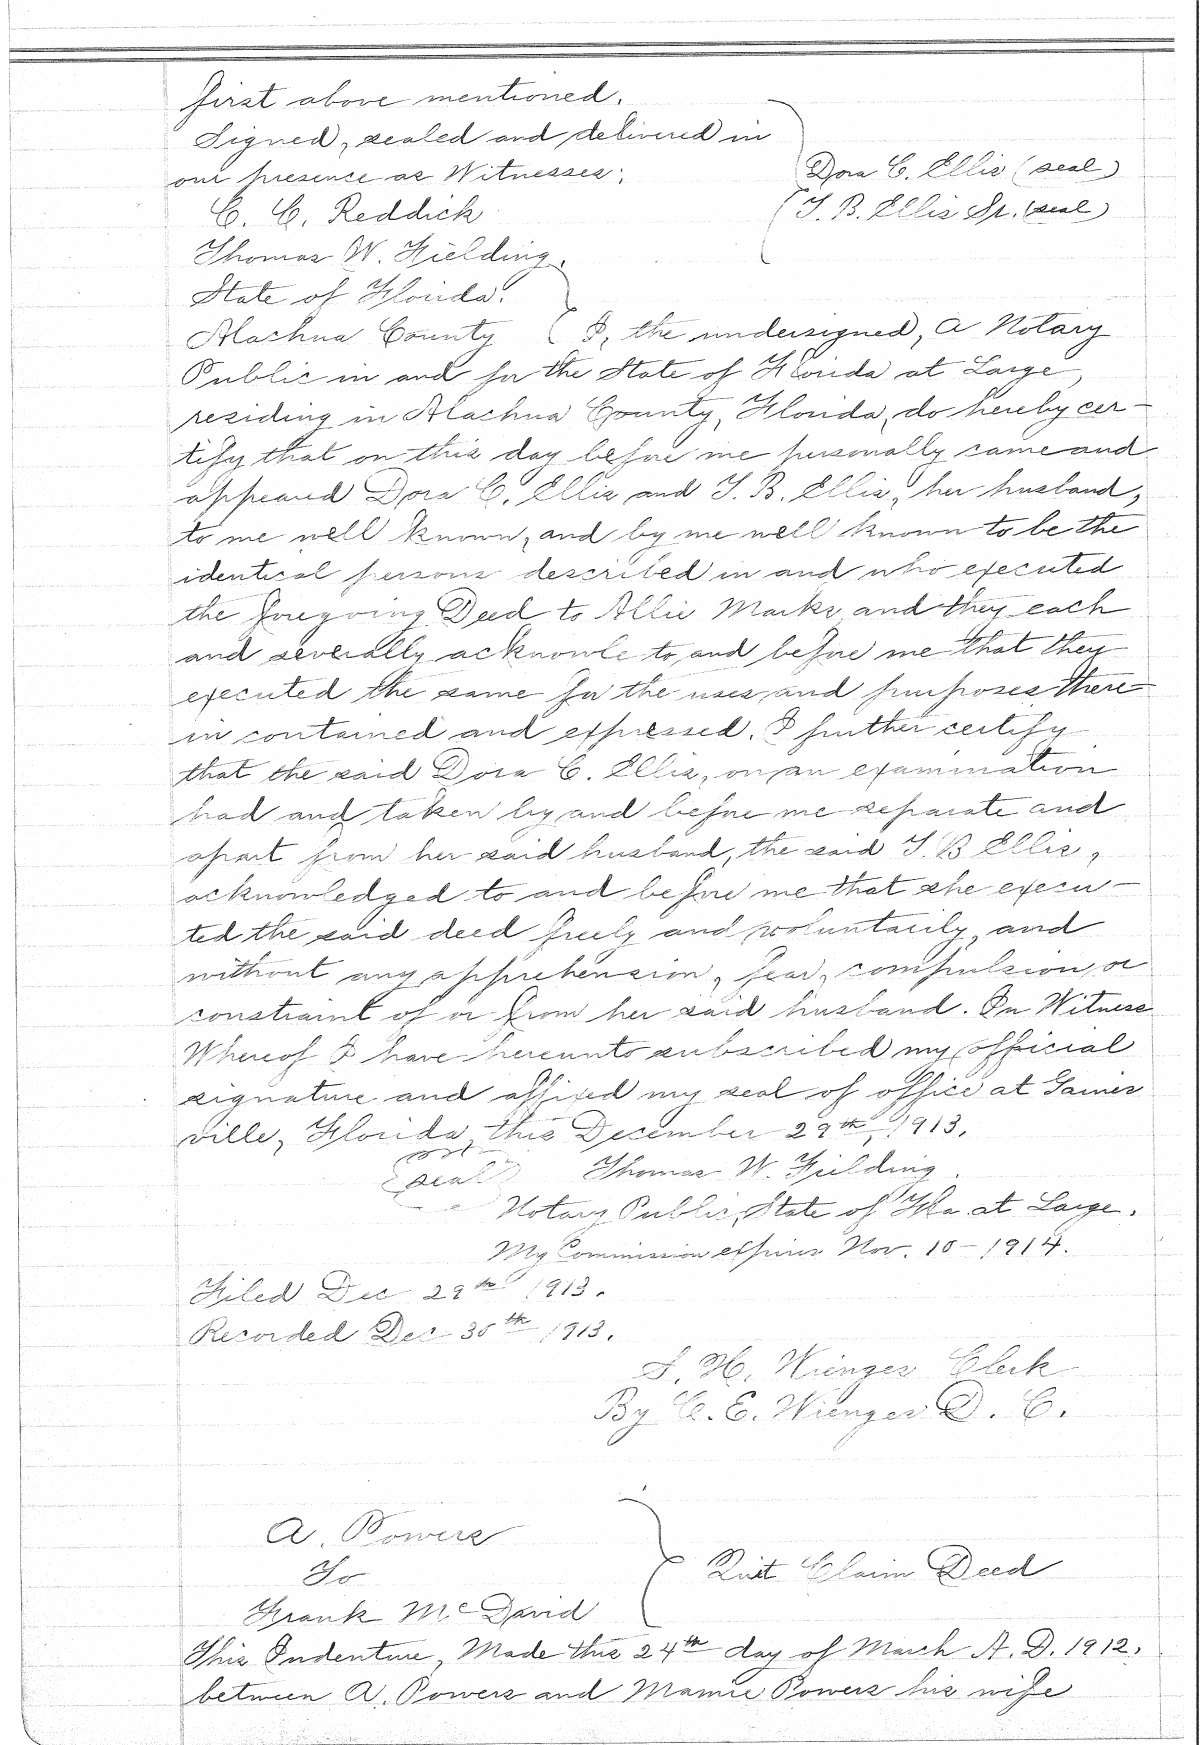 first above mentioned.
Signed, sealed and delivered in
our presence as Witnesses:
Dora C. Ellis (seal)
C. C. Reddick
T. B. Ellis Sr. (seal)
Thomas W. Fielding.
State of Florida.
Alachua County I, the undersigned, a Notary
Public in and for the State of Florida at Large,
residing in Alachua County, Florida, do hereby cer-
tify that on this day before me personally came and
appeared Dora C. Ellis and T. B. Ellis, her husband,
to me well known, and by me well known to be the
identical persons described in and who executed
the foregoing Deed to Allie Marks, and they each
and severally acknowle to and before me that they
executed the same for the uses and purposes there-
in contained and expressed. I further certify
that the said Dora C. Ellis, on an examination
had and taken by and before me separate and
apart from her said husband, the said T. B Ellis,
acknowledged to and before me that she execu-
ted the said deed freely and voluntarily, and
without any apprehension, fear, compulsion or
constraint of or from her said husband. In Witness
Whereof I have hereunto subscribed my official
signature and affixed my seal of office at Gaines
ville, Florida, this December 29th, 1913.
seal Thomas W. Fielding.
Notary Public, State of Fla. at Large.
My Commission expires Nov. 10-1914.
Filed Dec 29th 1913.
Recorded Dec 30th 1913.
S. H. Wienges Clerk
By C. E. Wienges D. C.
A. Powers
To
Quit Claim Deed
Frank McDavid
This Indenture, Made this 24th day of March A. D. 1912.
between A. Powers and Mamie Powers his wife